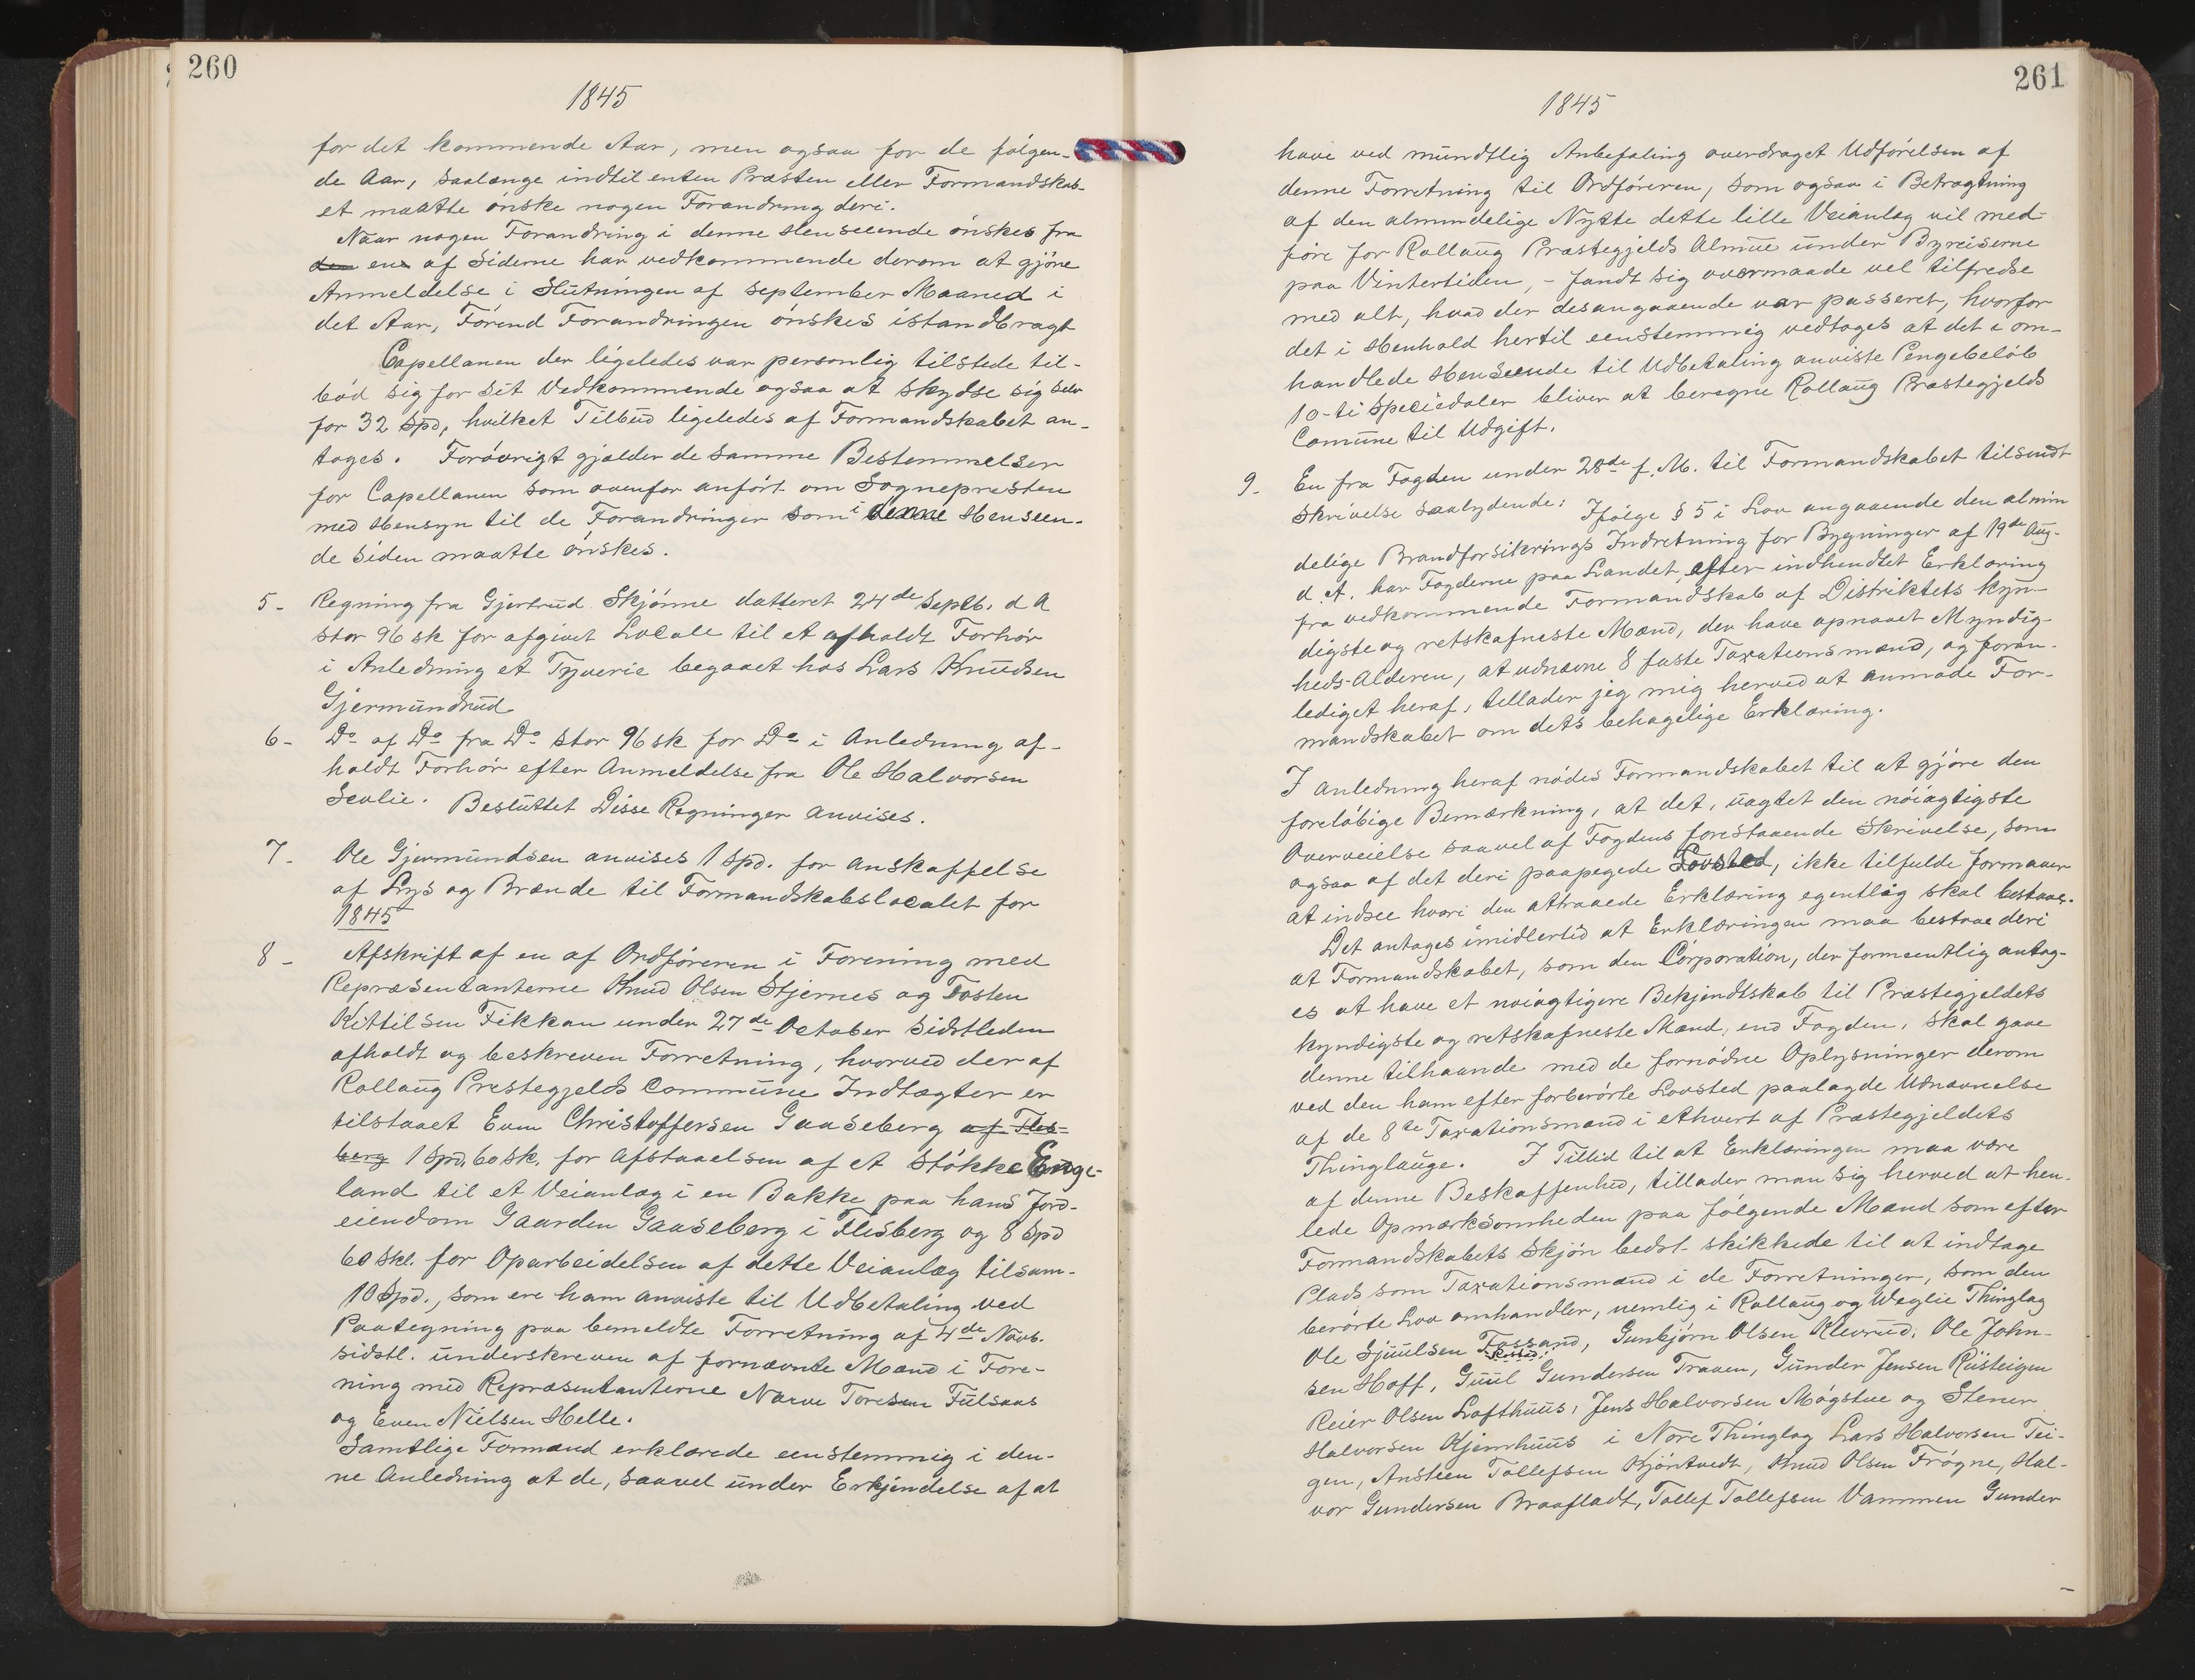 260
1845
for det kommende Aar, men ogsaa for de følgen-
de Aar, saalænge indtil enten Præsten eller Formandskab-
et maatte ønske nogen Forandring deri.
Naar nogen Forandring i denne Henseeende ønskes fra
den en af Siderne har vedkommende derom at gjøre
Anmeldelse i Slutningen af September Maaned i
det Aar, Førend Forandringen ønskes istandbragt
Capellanen der ligeledes var personlig tilstede til-
bød sig for sit Vedkommende ogsaa at skydse sig selv
for 32 Spd, hvilket Tilbud ligeledes af Formandskabet an-
toges. Forøvrigt gjælder de samme Bestemmelser
for Capellanen som ovenfor anført om Sognepresten
med Hensyn til de Forandringer som i denne Henseen-
de siden maatte ønskes.
5- Regning fra Gjertrud Skjønne datteret 24de Septb. d A
stor 96 sk for afgivet Locale til et afholdt Forhør
i Anledning et Tyverie begaaet hos Lars Knudsen
Gjermundrud
6- Do af Do fra Do stor 96 sk for Do i Anledning af-
holdt Forhør efter Anmeldelse fra Ole Halvorsen
Sevlie. Besluttet Disse Regninger anvises.
7- Ole Gjermundsen anvises 1 Spd. for anskaffelse
af Lys og Brænde til Formandskabslocalet for
1845
8- Afskrift af en af Ordføreren i Forening med
Repræsentanterne Knud Olsen Stjernes og Tosten
Kittilsen Fikkan under 27de October sidstleden
afholdt og beskreven Forretning, hvorved der af
Rollaug Prestegjelds Commune Indtægter er
tilstaaet Even Christoffersen Gaaseberg af Fles-
berg 1 Spd. 60 sk. for Afstaaelsen af et støkke Enge-
land til et Veianlæg i en Bakke paa hans Jord-
eiendom Gaarden Gaaseberg i Flesberg og 8 Spd
60 Skl. for Oparbeidelsen af dette Veianlæg tilsam-
10 Spd., som ere ham anviste til Udbetaling ved
Paategning paa bemeldte Forretning af 4de Novb.
sidstl. underskreven af fornævnte Mænd i Fore-
ning med Repræsentanterne Narve Toresen Fulsaas
og Even Nielsen Helle.
Samtlige Formænd erklærede eenstemmig i den-
ne Anledning at de, saavel under Erkjendelse af at
261
1845
have ved mundtlig Anbefaling overdraget Udførelsen af
denne Forretning til Ordføreren, som ogsaa i Betragtning
af den almindelige Nytte dette lille Veianlæg vil med-
føre for Rollaug Præstegjelds Almue under Byreiserne
paa Vintertiden, - fandt sig overmaade vel tilfredse
med alt, hvad der desangaaende var passeret, hvorfor
det i Henhold hertil eenstemmig vedtoges at det i om-
handlede Henseende til Udbetaling anviste Pengebeløb
10-ti Speciedaler bliver at beregne Rollaug Præstegjelds
Comune til Udgift.
9- En fra Fogden under 28de f. M. til Formandskabet tilsendt
Skrivelse saalydende: Ifølge § 5 i Lov angaaende den almin
delige Brandforsikrings Indretning for Bygninger af 19de Aug-
d. A. har Fogderne paa Landet, efter indhendtet Erklæring
fra vedkommende Formandskab af Distriktets kyn-
digste og retskafneste Mænd, der have opnaaet Myndig-
heds-Alderen, at udnævne 8 faste Taxationsmænd, og foran-
lediget heraf, tillader jeg mig herved at anmode For-
mandskabet om dets behagelige Erklæring.
I Anledning heraf nødes Formandskabet til at gjøre den
foreløbige Bemærkning, at det, uagtet den nøiagtigste
Overveielse saavel af Fogdens forestaaende Skrivelse, som
ogsaa af det deri paapegede Lovsted, ikke tilfulde formaaer
at indsee hvori den attraaede Erklæring egentlig skal bestaae.
Det antages imidlertid at Erklæringen maa bestaae deri
at Formandskabet, som den Corporation, der formeentlig antag-
es at have et nøiagtigere Bekjendtskab til Præstegjeldets
kyndigste og retskafneste Mænd, end Fogden, skal gaae
denne tilhaande med de fornødne Oplysninger derom
ved den ham efter forberørte Lovsted paalagde Udnævnelse
af de 8te Taxationsmænd i ethvert af Præstegjeldets
Thinglauge. I Tillid til at Erklæringen maa være
af denne Beskaffenhed, tillader man sig herved at hen-
lede Opmærksomheden paa følgende Mænd som efter
Formandskabets Skjøn bedst skikkede til at indtage
Plads som Taxationsmænd i de Forretninger, som den
berørte Lov omhandler, nemlig i Rollaug og Weglie Thinglag
Ole Sjuulsen Fossand, Gunbjørn Olsen Klevrud, Ole John-
sen Hoff, Guul Gundersen Traaen, Gunder Jensen Rusteigen
Reier Olsen Lofthuus, Jens Halvorsen Møgstue og Stener
Halvorsen Kjemhuus i Nore Thinglag Lars Halvorsen Tei-
gen, Ansteen Tollefsen Kjøntvedt, Knud Olsen Frøgne, Hal-
vor Gundersen Braafladt, Tollef Tollefsen Vammen Gunder